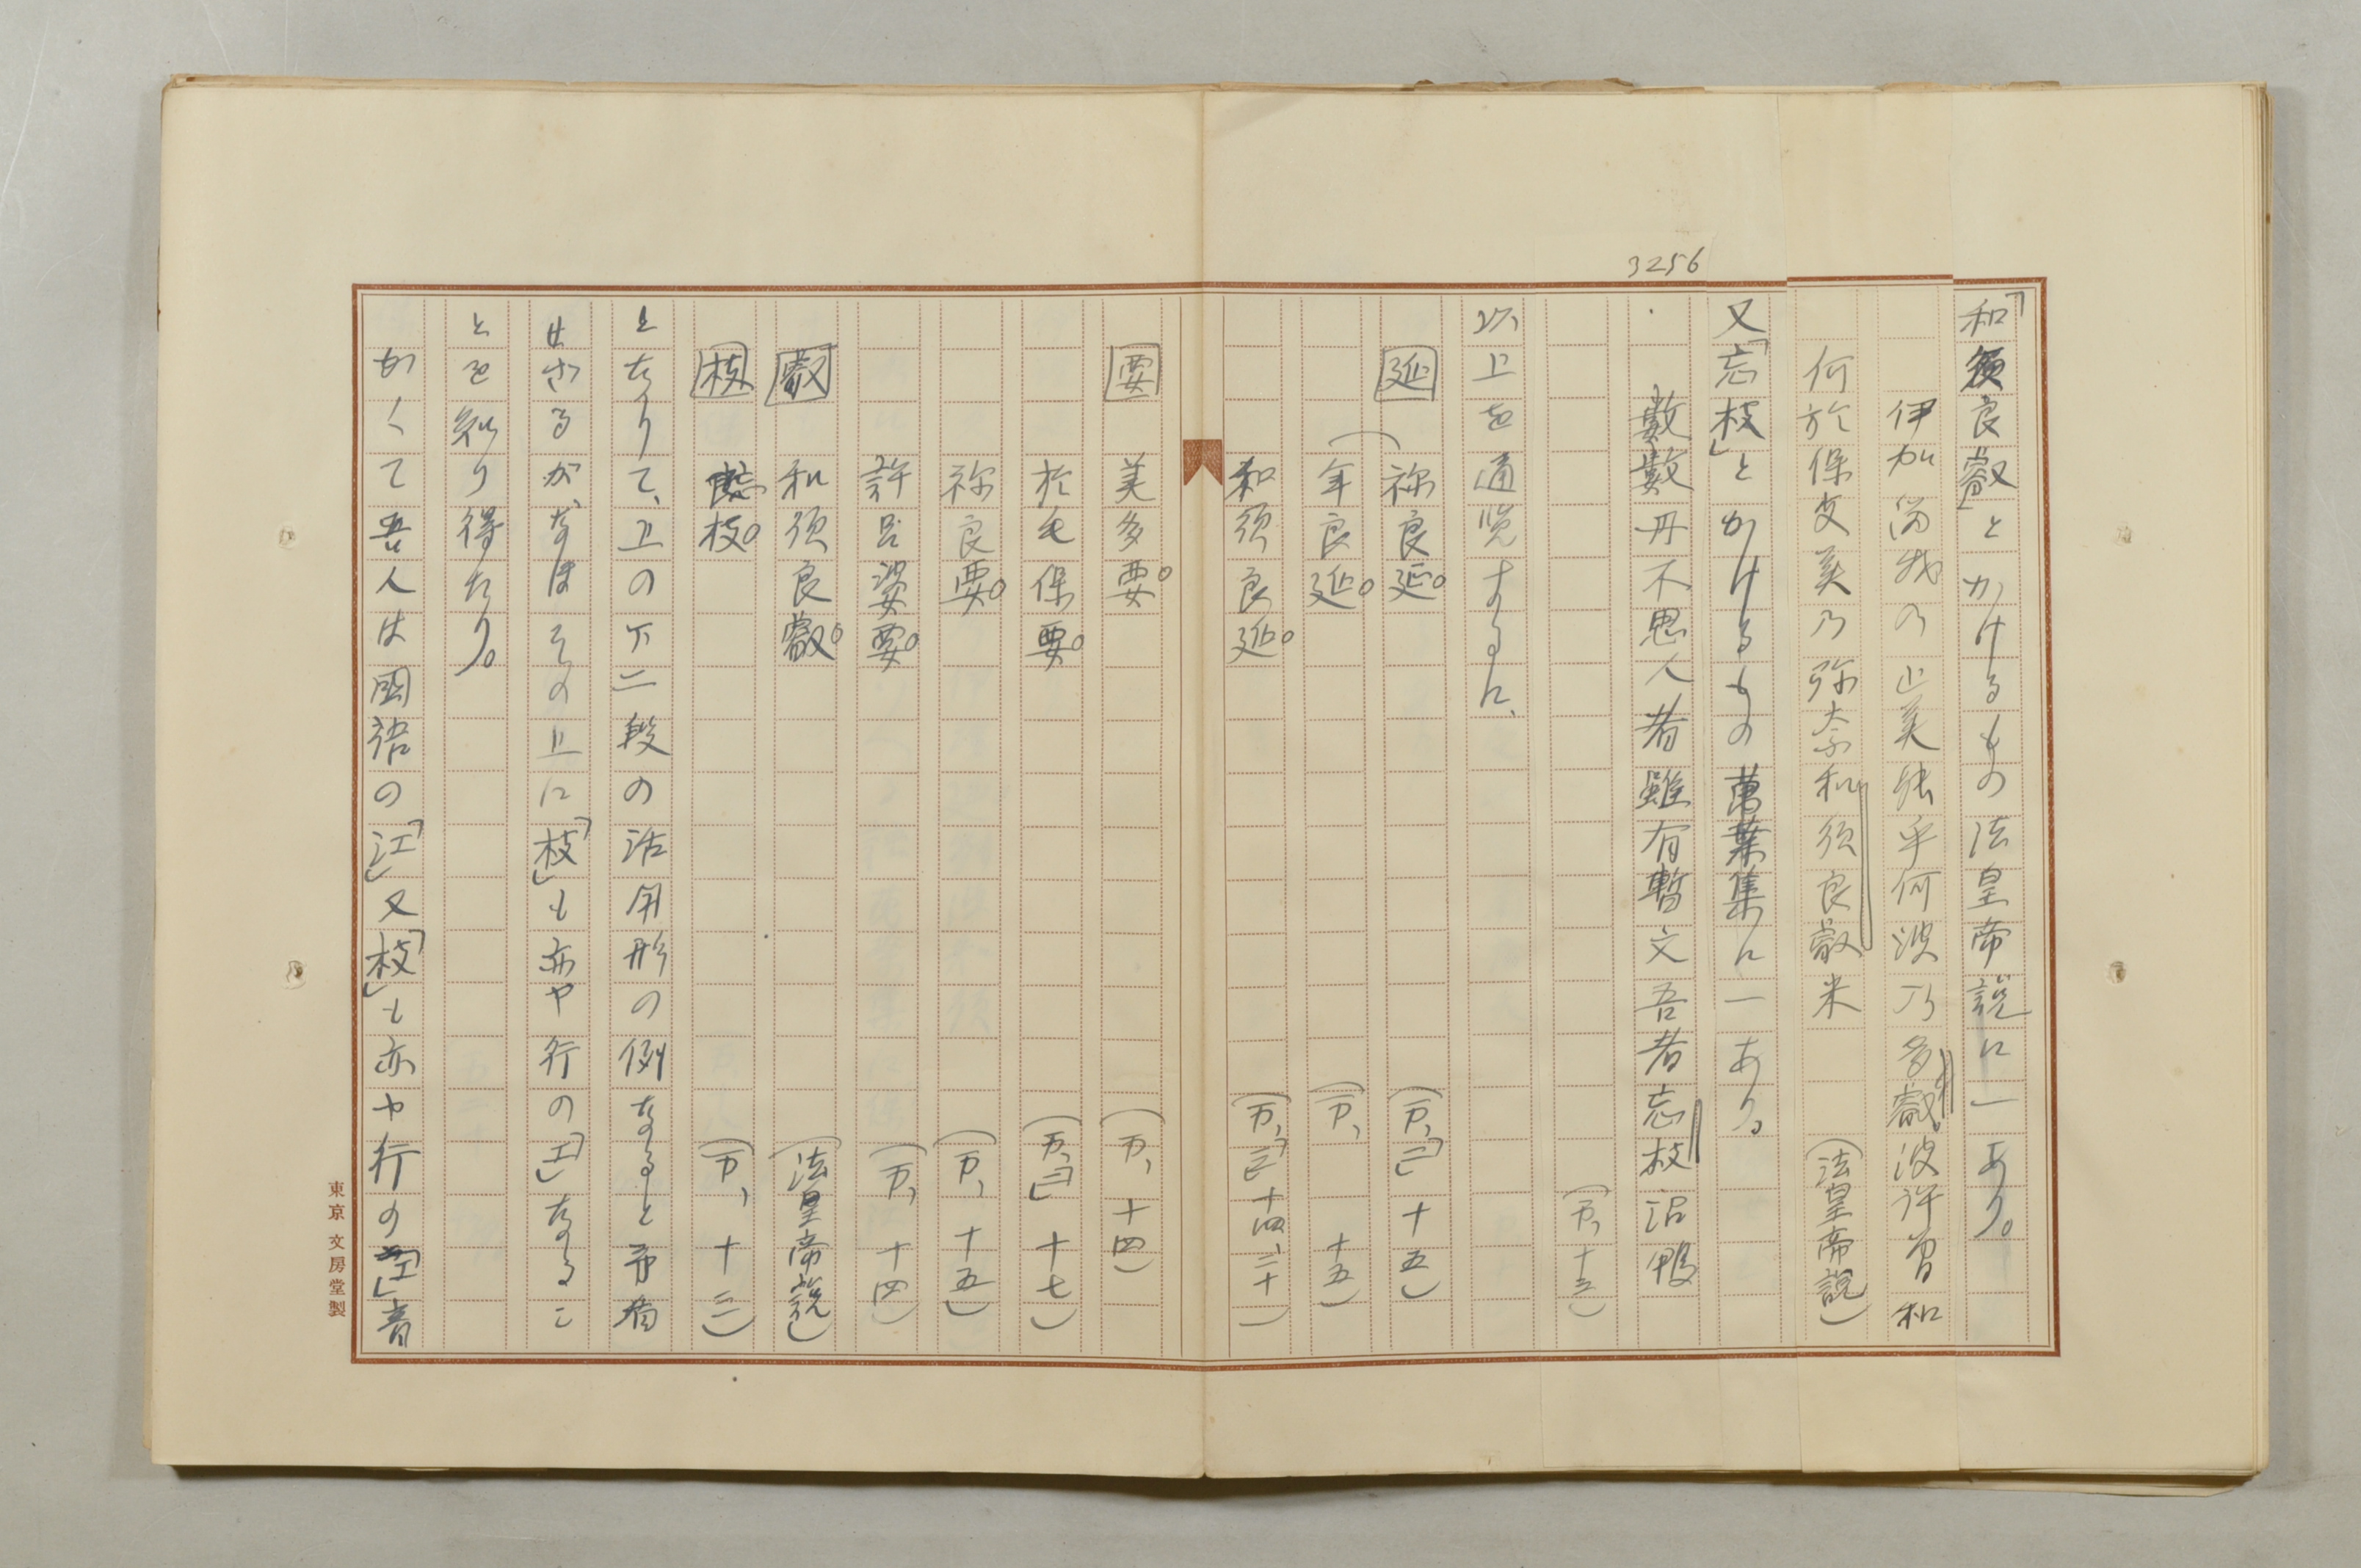 3256
「和須良叡」とかけるもの法皇帝説に一あり。
伊加留我乃止美能乎何波乃多叡波許曾和
何於保支美乃弥奈和須良叡米 (法皇帝説)
又「忘枝」とかけるもの萬葉集に一あり。
數數丹不思人者雖有暫文吾者忘枝沼鴨
(万、十三)
以上を通覧するに、
延 祢良延。 (万、「三」十五)
年良延。 (万、十五)
和須良延。 (万、「三」十四、二十)
要 美多要。 (万、十四)
於毛保要。 (万、「三」十七)
祢良要。 (万、十五)
許呂婆要。 (万、十四)
叡 和須良叡。 (法皇帝説)
枝 忘枝。 (万、十三)
とありて、上の下二段の活用形の例なると予備
せざるがなほその上に「枝」も亦や行の「エ」なるこ
とを知り得たり。
かくて吾人は國語の「江」又「枝」も亦や行の「エ」音
東京 文房堂製